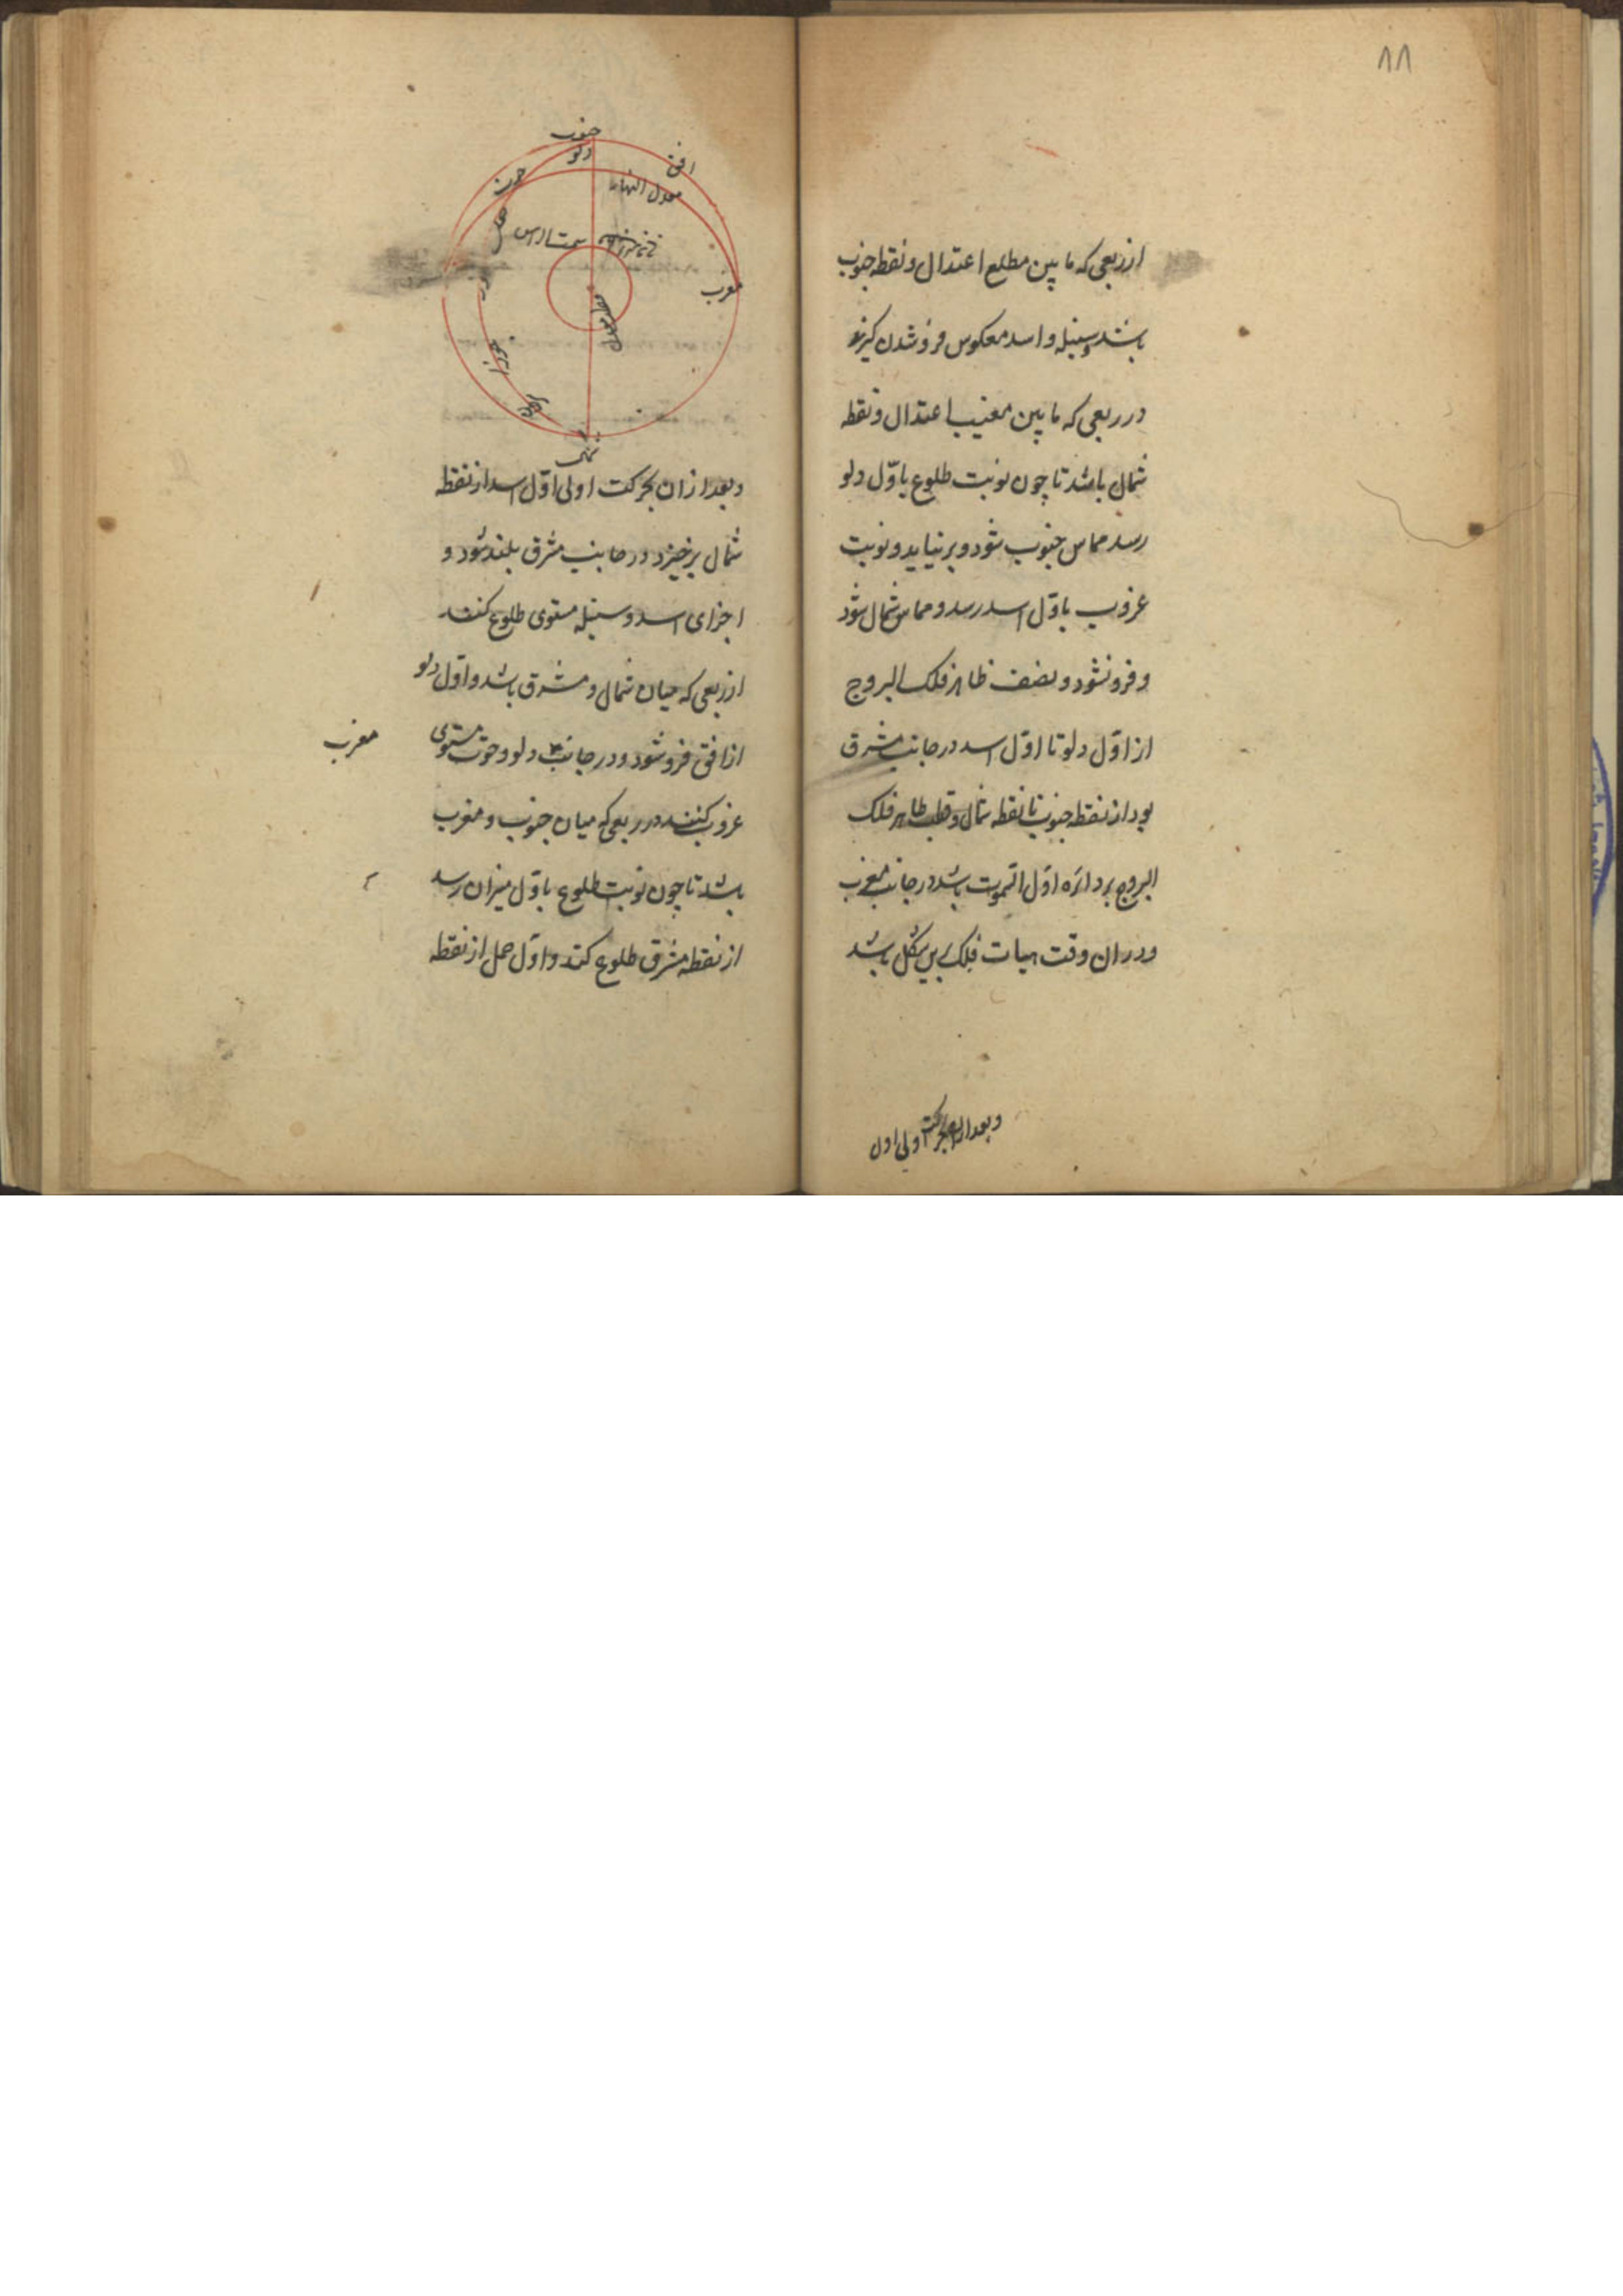 ۸۸
از ربعی که ما بین مطلع اعتدال و نقطه جنوب
باشد و سنبله و اسد معکوس فرو شدن گیرند
در ربعی که ما بین مغیب اعتدال و نقطه
شمال باشد تا چون نوبت طلوع باوّل دلو
رسد مماس جنوب شود و برنیاید و نوبت
غروب باوّل اسد رسد و مماس شمال شود
و فرو نشود و نصف ظاهر فلک البروج
از اوّل دلو تا اوّل اسد در جانب مشرق
بود از نقطه جنوب تا نقطه شمال و قطب ظاهر فلک
البروج بر دائره اوّل السموت باشد در جانب مغرب
و در ان وقت هیات فلک برین شکل باشد
و بعد از ان بحرکت اولی اول
جنوب
دلو
افق
حوت
معدل النهار
حمل
سمت الراس
مغرب
ثور
جوزا
سرطان
شمال
و بعد از ان بحرکت اولی اوّل اسد از نقطه
شمال برخیزد و در جانب مشرق بلند شود و
اجزای اسد و سنبله مستوی طلوع کنند
از ربعی که میان شمال و مشرق باشد و اوّل دلو
از افق فرو شود و در جانب دلو و حوت مستوی
مغرب
غروب کنند در ربعی که میان جنوب و مغرب
باشد تا چون نوبت طلوع باوّل میزان رسد
از نقطه مشرق طلوع کند و اوّل حمل از نقطه